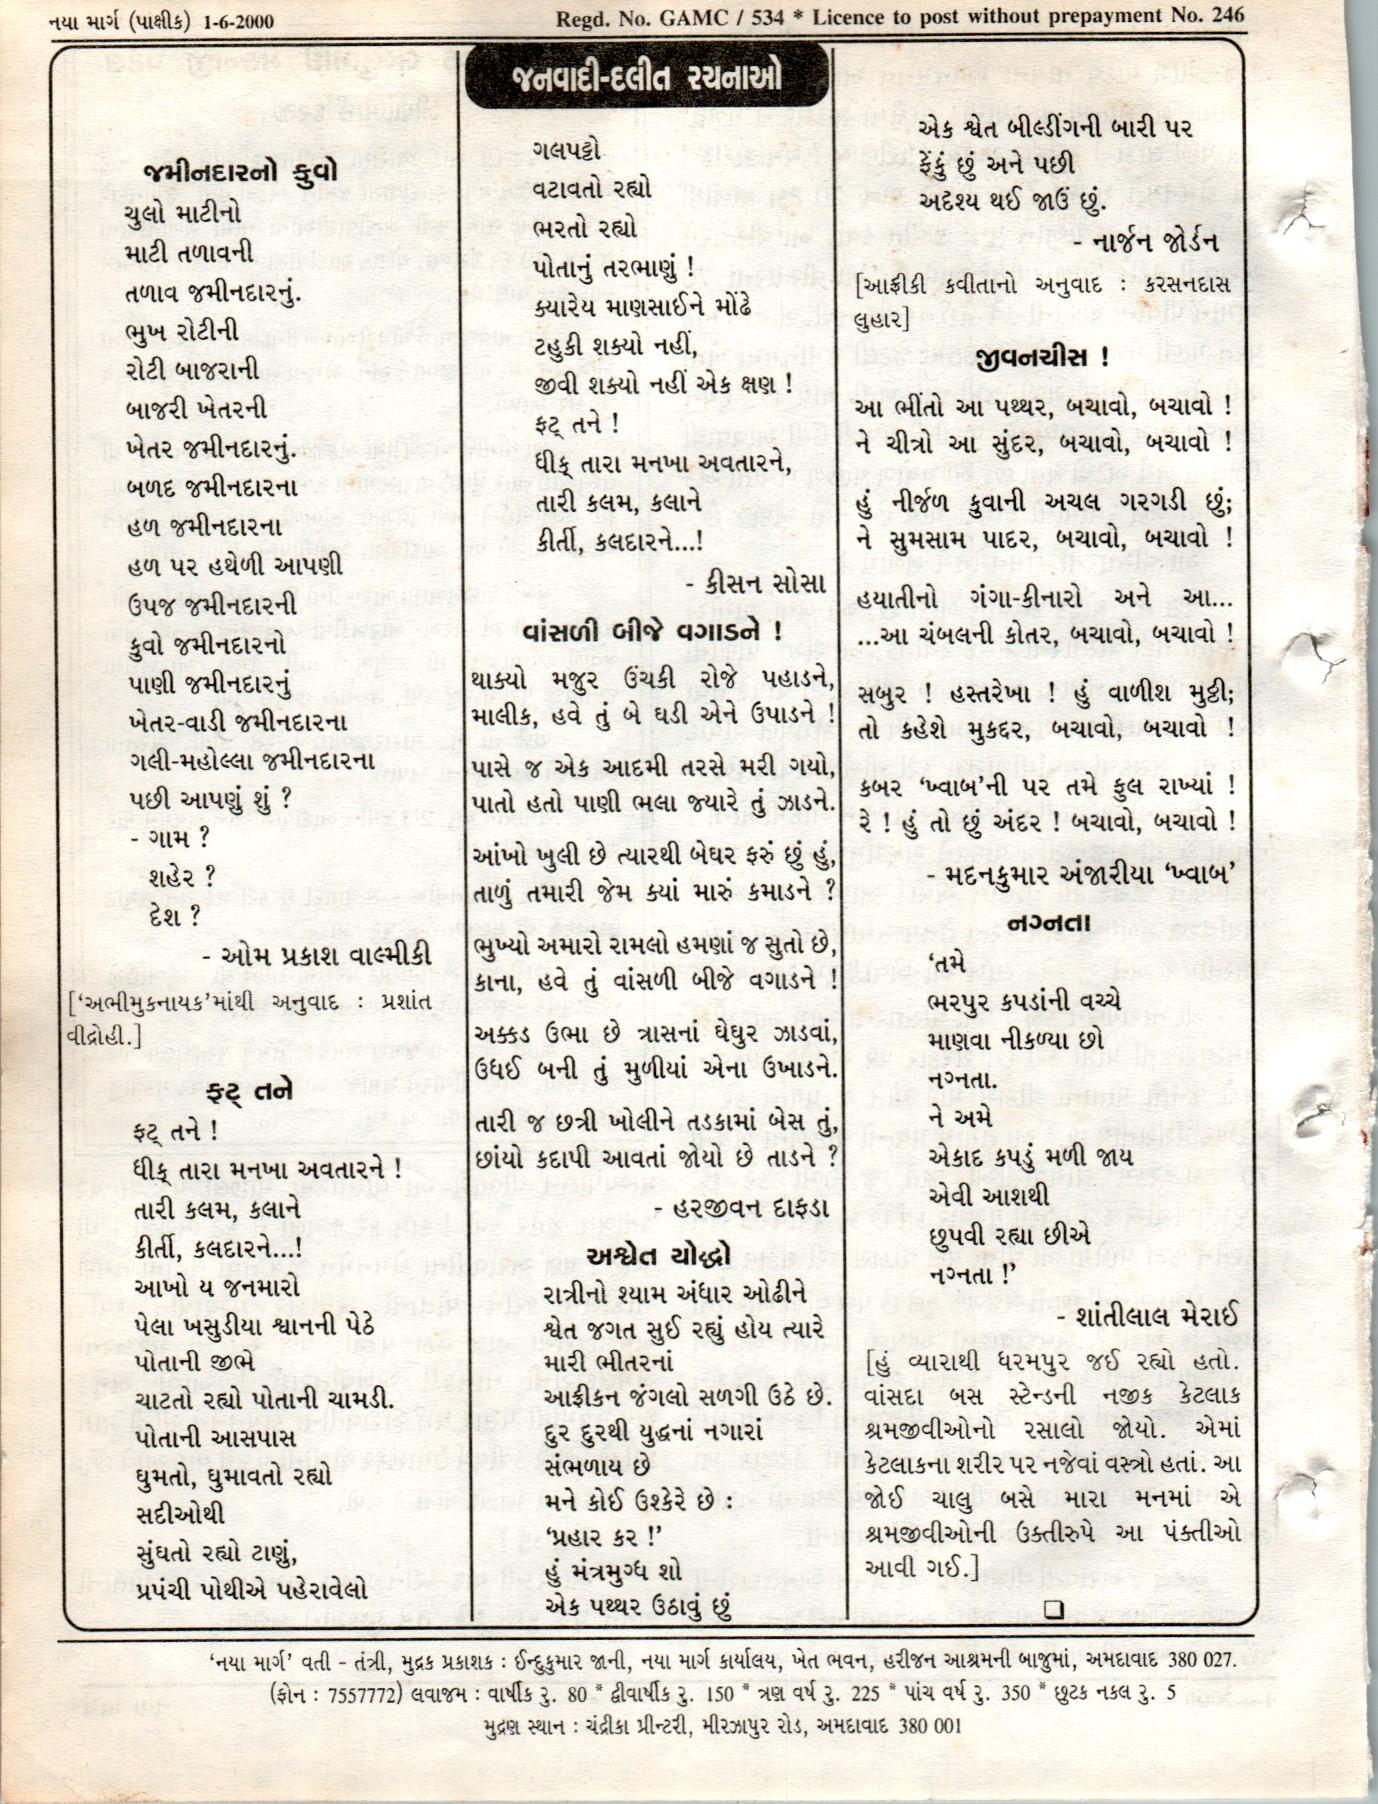 નયા માર્ગ (પાક્ષીક) 1-6-2000
Regd. No. GAMC / 534 * Licence to post without prepayment No. 246
જનવાદી-દલીત રચનાઓ
જમીનદારનો કુવો
ચુલો માટીનો
માટી તળાવની
તળાવ જમીનદારનું.
ભુખ રોટીની
રોટી બાજરાની
બાજરી ખેતરની
ખેતર જમીનદારનું.
બળદ જમીનદારના
હળ જમીનદારના
હળ પર હથેળી આપણી
ઉપજ જમીનદારની
કુવો જમીનદારનો
પાણી જમીનદારનું
ખેતર-વાડી જમીનદારના
ગલી-મહોલ્લા જમીનદારના
પછી આપણું શું ?
- ગામ ?
શહેર ?
દેશ ?
- ઓમ પ્રકાશ વાલ્મીકી
[‘અભીમુકનાયક’માંથી અનુવાદ : પ્રશાંત
વીદ્રોહી.]
ફટ્ તને
ફટ્ તને !
ધીક્ તારા મનખા અવતારને !
તારી કલમ, કલાને
કીર્તી, કલદારને...!
આખો ય જનમારો
પેલા ખસુડીયા શ્વાનની પેઠે
પોતાની જીભે
ચાટતો રહ્યો પોતાની ચામડી.
પોતાની આસપાસ
ઘુમતો, ઘુમાવતો રહ્યો
સદીઓથી
સુંઘતો રહ્યો ટાણું,
પ્રપંચી પોથીએ પહેરાવેલો
ગલપટ્ટો
વટાવતો રહ્યો
ભરતો રહ્યો
પોતાનું તરભાણું !
ક્યારેય માણસાઈને મોંઢે
ટહુકી શક્યો નહીં,
જીવી શક્યો નહીં એક ક્ષણ !
ફટ્ તને !
ધીક્ તારા મનખા અવતારને,
તારી કલમ, કલાને
કીર્તી, કલદારને...!
- કીસન સોસા
વાંસળી બીજે વગાડને !
થાક્યો મજુર ઉંચકી રોજે પહાડને,
માલીક, હવે તું બે ઘડી એને ઉપાડને !
પાસે જ એક આદમી તરસે મરી ગયો,
પાતો હતો પાણી ભલા જ્યારે તું ઝાડને.
આંખો ખુલી છે ત્યારથી બેઘર ફરું છું હું,
તાળું તમારી જેમ ક્યાં મારું કમાડને ?
ભુખ્યો અમારો રામલો હમણાં જ સુતો છે,
કાના, હવે તું વાંસળી બીજે વગાડને !
અક્કડ ઉભા છે ત્રાસનાં ઘેઘુર ઝાડવાં,
ઉધઈ બની તું મુળીયાં એના ઉખાડને.
તારી જ છત્રી ખોલીને તડકામાં બેસ તું,
છાંયો કદાપી આવતાં જોયો છે તાડને ?
- હરજીવન દાફડા
અશ્વેત યોદ્ધો
રાત્રીનો શ્યામ અંધાર ઓઢીને
શ્વેત જગત સુઈ રહ્યું હોય ત્યારે
મારી ભીતરનાં
આફ્રીકન જંગલો સળગી ઉઠે છે.
દુર દુરથી યુદ્ધનાં નગારાં
સંભળાય છે
મને કોઈ ઉશ્કેરે છે :
‘પ્રહાર કર !’
હું મંત્રમુગ્ધ શો
એક પથ્થર ઉઠાવું છું
એક શ્વેત બીલ્ડીંગની બારી પર
ફેંકું છું અને પછી
અદૃશ્ય થઈ જાઉં છું.
- નાર્જન જોર્ડન
[આફ્રીકી કવીતાનો અનુવાદ : કરસનદાસ
લુહાર]
જીવનચીસ !
આ ભીંતો આ પથ્થર, બચાવો, બચાવો !
ને ચીત્રો આ સુંદર, બચાવો, બચાવો !
હું નીર્જળ કુવાની અચલ ગરગડી છું;
ને સુમસામ પાદર, બચાવો, બચાવો !
હયાતીનો ગંગા-કીનારો અને આ...
...આ ચંબલની કોતર, બચાવો, બચાવો !
સબુર ! હસ્તરેખા ! હું વાળીશ મુઠ્ઠી;
તો કહેશે મુકદ્દર, બચાવો, બચાવો !
કબર ‘ખ્વાબ’ની પર તમે ફુલ રાખ્યાં !
રે ! હું તો છું અંદર ! બચાવો, બચાવો !
- મદનકુમાર અંજારીયા ‘ખ્વાબ’
નગ્નતા
‘તમે
ભરપુર કપડાંની વચ્ચે
માણવા નીકળ્યા છો
નગ્નતા.
ને અમે
એકાદ કપડું મળી જાય
એવી આશથી
છુપવી રહ્યા છીએ
નગ્નતા !’
- શાંતીલાલ મેરાઈ
[હું વ્યારાથી ધરમપુર જઈ રહ્યો હતો.
વાંસદા બસ સ્ટેન્ડની નજીક કેટલાક
શ્રમજીવીઓનો રસાલો જોયો. એમાં
કેટલાકના શરીર પર નજેવાં વસ્ત્રો હતાં. આ
જોઈ ચાલુ બસે મારા મનમાં એ
શ્રમજીવીઓની ઉક્તીરુપે આ પંક્તીઓ
આવી ગઈ.]
‘નયા માર્ગ’ વતી - તંત્રી, મુદ્રક પ્રકાશક : ઈન્દુકુમાર જાની, નયા માર્ગ કાર્યાલય, ખેત ભવન, હરીજન આશ્રમની બાજુમાં, અમદાવાદ 380 027.
(ફોન : 7557772) લવાજમ : વાર્ષીક રુ. 80 * દ્વીવાર્ષીક રુ. 150 * ત્રણ વર્ષ રુ. 225 * પાંચ વર્ષ રુ. 350 * છુટક નકલ રુ. 5
મુદ્રણ સ્થાન : ચંદ્રીકા પ્રીન્ટરી, મીરઝાપુર રોડ, અમદાવાદ 380 001